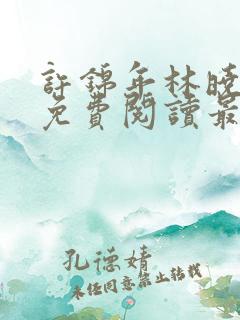 許錦年林曉
免費閱讀最
孔德婧
未经同意禁止转载